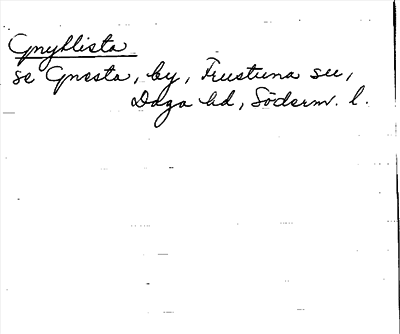 Gnyhlista
se Gnesta, by, Frustuna sn,
Daga hd, Söderm. l.